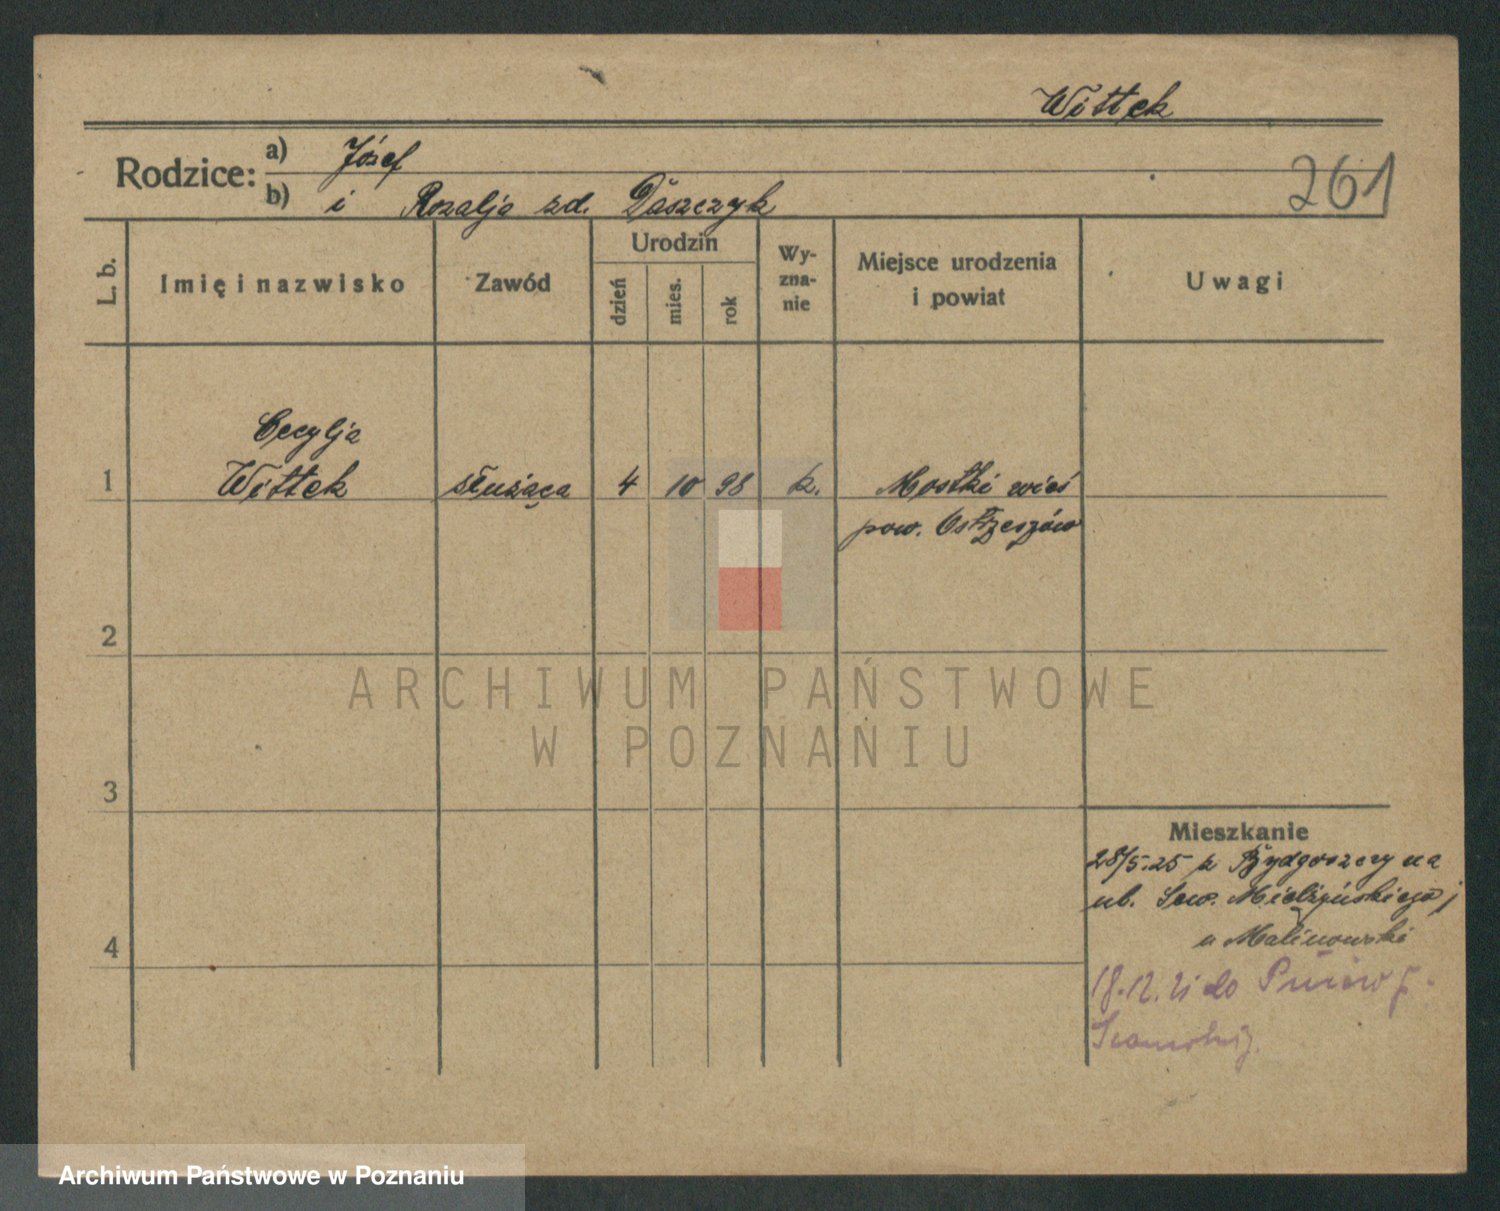 Wittek
Rodzice: a) Józef
b) i Rozalja zd. Daszczyk
261
L. b.
Imię i nazwisko
Zawód
Urodzin
dzień
mies.
rok
Wy-
zna-
nie
Miejsce urodzenia
i powiat
Uwagi
Cecylja
1 Wittek służąca 4 10 98 k. Mostki wieś
pow. Ostrzeszów
2
ARCHIWUM PAŃSTWOWE
W POZNANIU
3
Mieszkanie
28/5.25 z Bydgoszczy na
ul. Sew. Mielżyńskiego
u Malinowski
4
18.12. do Pniew
Archiwum Państwowe w Poznaniu